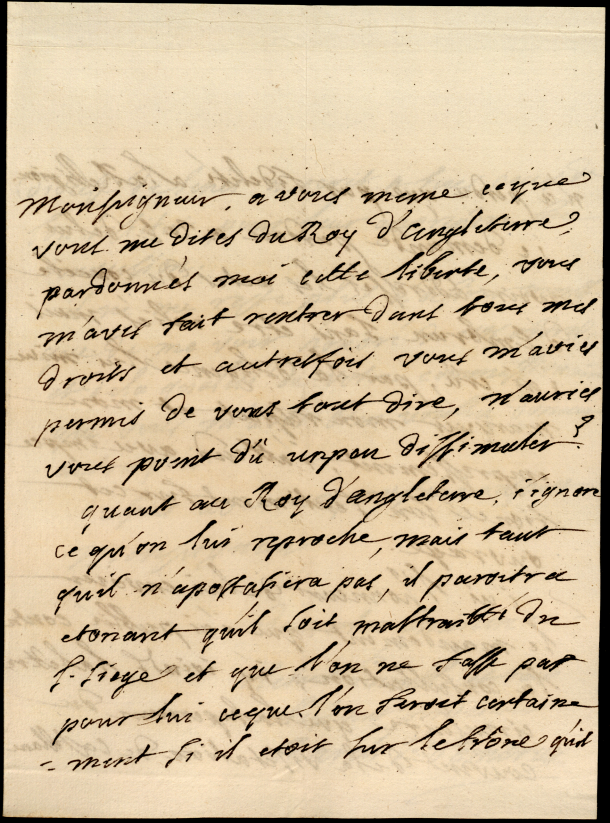 Monseigneur, a vous meme ceque
vous me dites du Roy d'angleterre,
pardonnés moi cette liberté, vous
m'avés fait rentrer dans tous mes
droits et autrefois vous m'aviés
permis de vous tout dire, n'auriés
vous point dû unpeu dissimuler?
quant au Roy d'angleterre, j'ignore
ce qu'on lui reproche, mais tant
quil n'apostasiera pas, il paroitra
etonant qu'il soit maltraitté du
S. Siege et que l'on ne fasse pas
pour lui ceque l'on feroit certaine
=ment si il etoit sur le trône qu'il